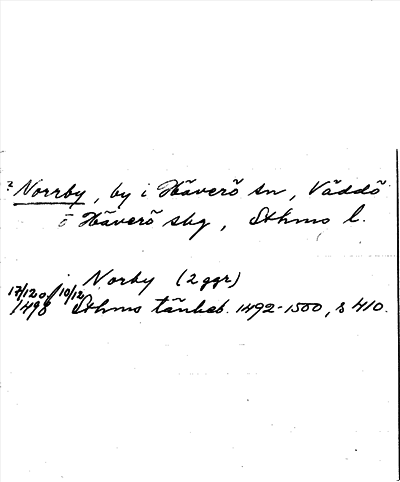 ? Norrby, by i Häverö sn, Väddö
o Häverö sbg, Sthms l.
i Norby (2 ggr)
17/12 o 10/12
1498 Sthms tänkeb. 1492-1500, s 410.